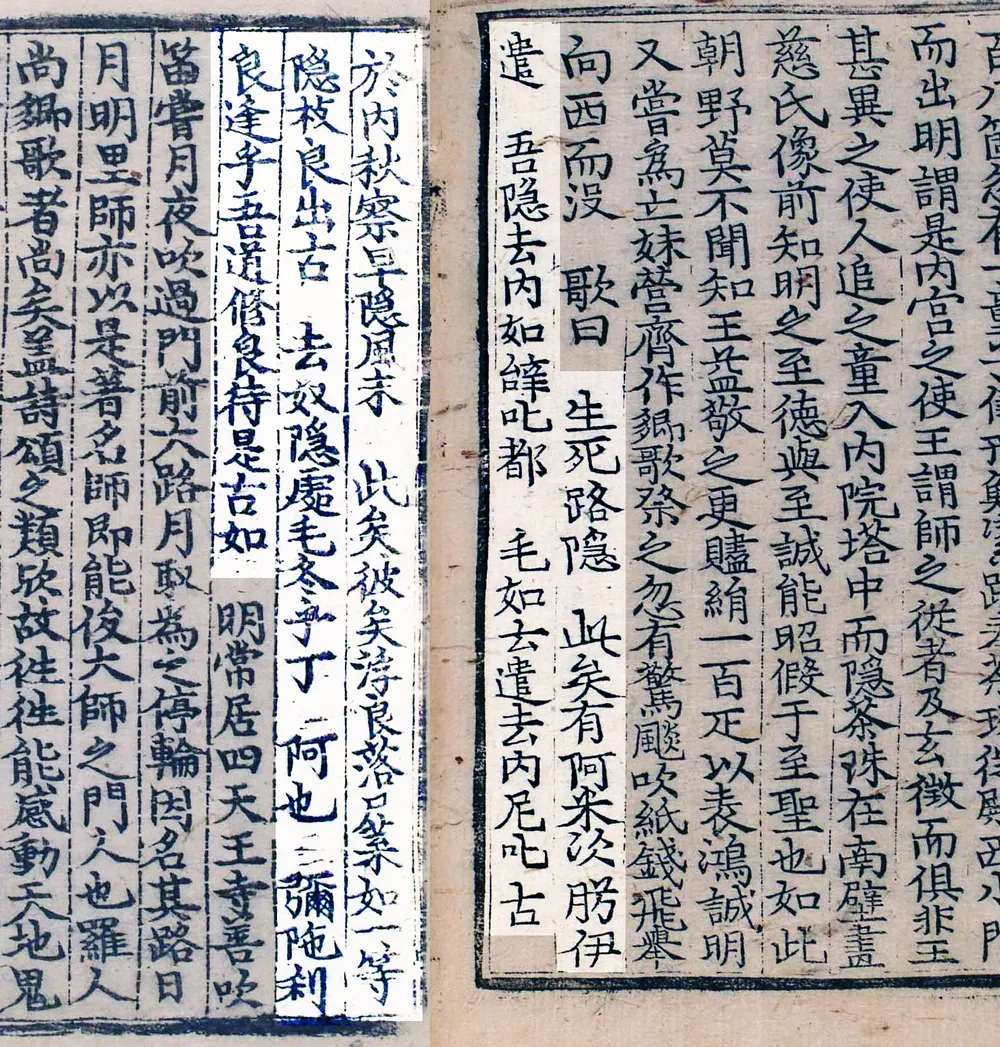 而出明謂是內宮之使王謂師之從者及玄徵而俱非王
甚異之使人追之童入內院塔中而隱茶珠在南壁畫
慈氏像前知明之至德與至誠能昭假于至聖也如此
朝野莫不聞知王益敬之更贐絹一百疋以表鴻誠明
又嘗爲亡妹營齋作鄕歌祭之忽有驚颷吹紙錢飛舉
向西而没 歌曰 生死路隱 此矣有阿米次肹伊
遣 吾隱去內如辝叱都 毛如去遣去內尼叱古
於內秋察早隱風未 此矣彼矣浮良落尸葉如一等
隱枝良出古 去奴隱處毛冬乎丁 阿也 彌陁利
良逢乎吾道修良待是古如 明常居四天王寺善吹
笛嘗月夜吹過門前大路月馭為之停輪因名其路曰
月明里師亦以是著名師即能俊大師之門人也羅人
尚鄕歌者尚矣盖詩頌之類歟故往往能感動天地鬼